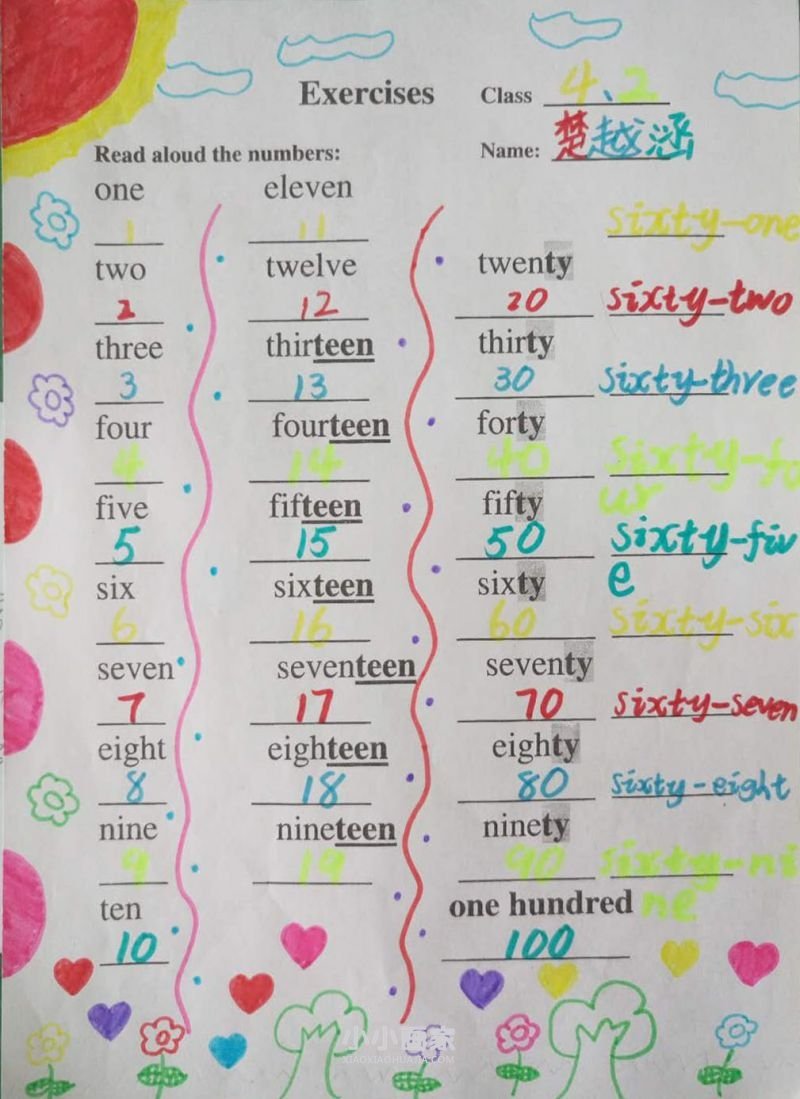 Exercises Class 4、2
Read aloud the numbers: Name: 楚越涵
one eleven
1 11 sixty-one
two twelve twenty
2 12 20 sixty-two
three thirteen thirty
3 13 30 sixty-three
four fourteen forty
4 14 40 sixty-fo
ur
five fifteen fifty
5 15 50 sixty-fiv
e
six sixteen sixty
6 16 60 sixty-six
seven seventeen seventy
7 17 70 sixty-seven
eight eighteen eighty
8 18 80 sixty-eight
nine nineteen ninety
9 19 90 sixty-ni
ne
ten one hundred
10 100
小小画家
XIAOXIAOHUAJIA.COM